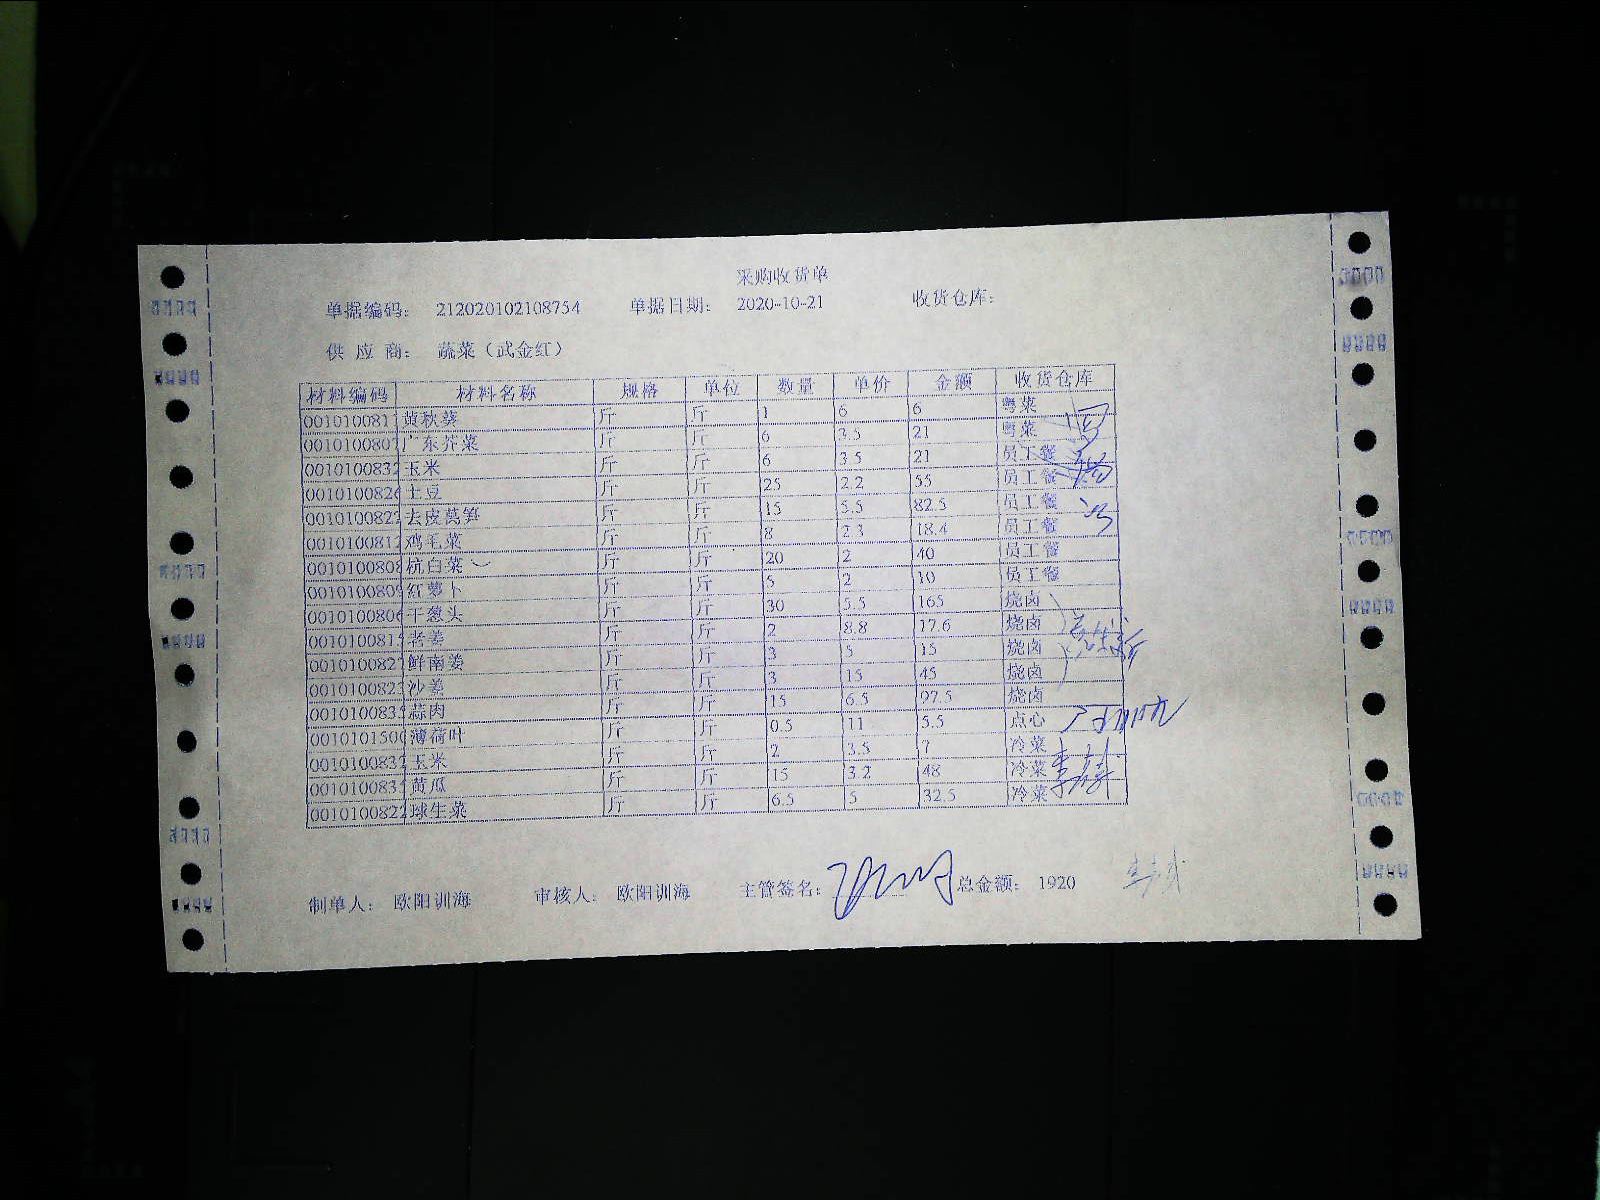 采购收货单
单据编码: 212020102108754 单据日期: 2020-10-21 收货仓库:
供 应 商: 蔬菜（武金红）
材料编码 材料名称 规格 单位 数量 单价 金额 收货仓库
0010100811 黄秋葵 斤 斤 1 6 6 粤菜
0010100807 广东芥菜 斤 斤 6 3.5 21 粤菜
0010100832 玉米 斤 斤 6 3.5 21 员工餐
0010100826 土豆 斤 斤 25 2.2 55 员工餐
0010100822 去皮莴笋 斤 斤 15 5.5 82.5 员工餐
0010100812 鸡毛菜 斤 斤 8 2.3 18.4 员工餐
0010100808 杭白菜 斤 斤 20 2 40 员工餐
0010100809 红萝卜 斤 斤 5 2 10 员工餐
0010100806 干葱头 斤 斤 30 5.5 165 烧卤
0010100815 老姜 斤 斤 2 8.8 17.6 烧卤
0010100827 鲜南姜 斤 斤 3 5 15 烧卤
0010100823 沙姜 斤 斤 3 15 45 烧卤
0010100835 蒜肉 斤 斤 15 6.5 97.5 烧卤
0010101500 薄荷叶 斤 斤 0.5 11 5.5 点心
0010100832 玉米 斤 斤 2 3.5 7 冷菜
0010100835 黄瓜 斤 斤 15 3.2 48 冷菜
0010100822 球生菜 斤 斤 6.5 5 32.5 冷菜
制单人: 欧阳训海 审核人: 欧阳训海 主管签名: 总金额: 1920